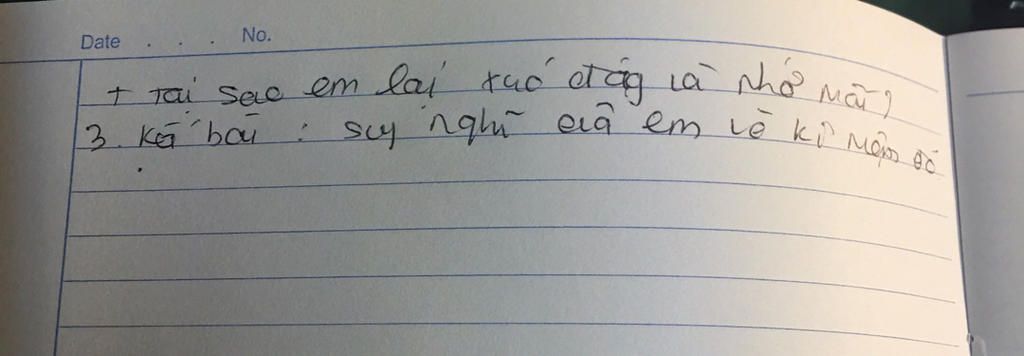 Date . . . No.
+ Tại sao em lại xúc động và nhớ mãi?
3. Kết bài : suy nghĩ của em về kỉ niệm đó
.